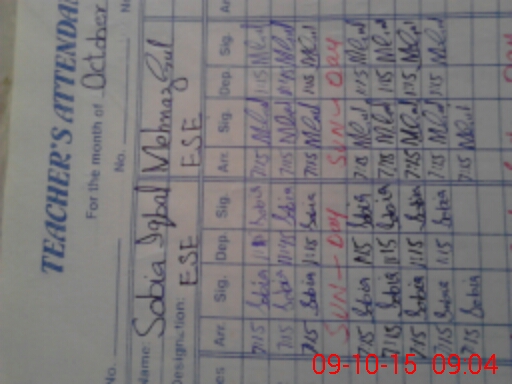 TEACHER'S ATTENDA
For the month of October
No. No. No.
Name: Sobia Iqbal Mehnaz Gul
Designation: ESE ESE
Arr. Sig. Dep. Sig. Arr. Sig. Dep. Sig. Ar
7/15 Sobia Sobia 7/15 MGul 1:15 MGul
7/15 Sobia Sobia 7/15 MGul MGul
7/15 Sobia 1:15 Sobia 7/15 MGul 1:15 MGul
SUN - DAY SUN - DAY
7/15 Sobia 1:15 Sobia 7/15 MGul 1:15 MGul
7/15 Sobia 1:15 Sobia 7/15 MGul 1:15 MGul
7/15 Sobia 1:15 Sobia 7/15 MGul 1:15 MGul
7/15 Sobia 1:15 Sobia 7/15 MGul 1:15 MGul
7/15 Sobia 7/15 MGul
09-10-15 09:04